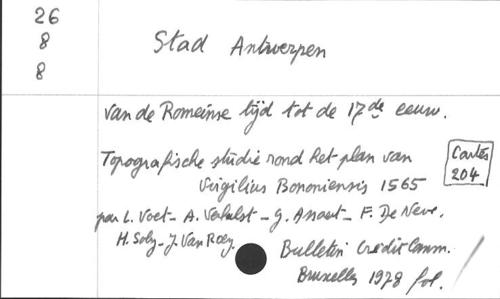 26
8
8
Stad Antwerpen
van de Romeinse tijd tot de 17de eeuw.
Topografische studie rond het plan van
Virgilius Bononiensis 1565
Cartes
204
par L. Voet - A. Verhulst - G. Asaert - F. De Nave.
H. Soly - J. Van Roey.
Bulletin Crédit Comm.
Bruxelles 1978 fol.